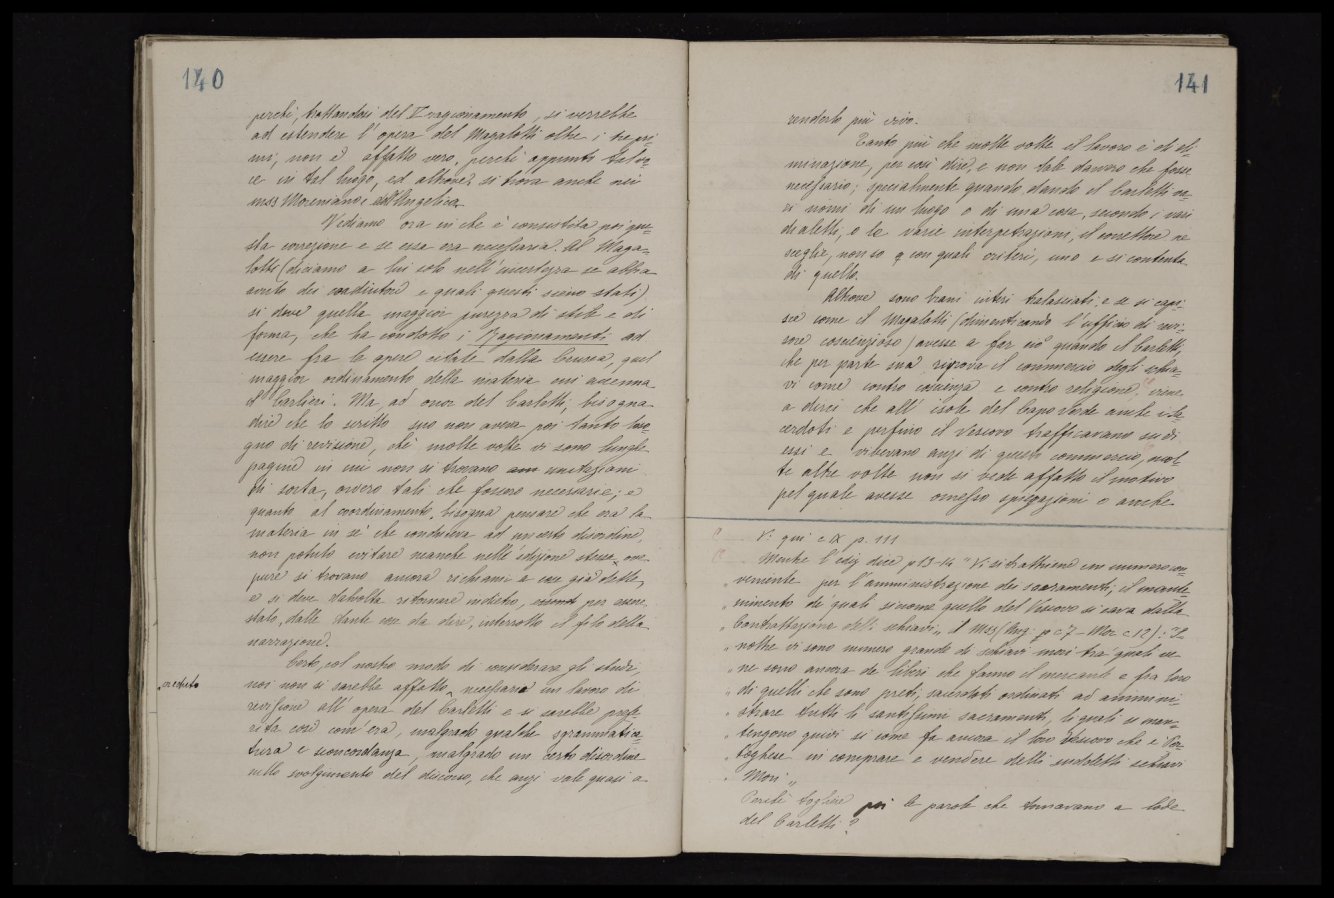 140
perchè, trattandosi del V ragionamento, si verrebbe
ad estendere l'opera del Magalotti oltre i tre pri=
mi, non è affatto vero, perchè appunto
in tal luogo, ed altrove, si trova anche nei
mss Moreniano e Angelica
Vediamo ora in che è consistita poi que=
sta correzione e se essa era necessaria. Al Maga=
lotti (diciamo a lui solo nell'incertezza se abbia
avuto dei coadiutori e quali questi sieno stati)
si deve quella maggior purezza di stile e di
forma, che ha condotto i Ragionamenti ad
essere fra le opere citate dalla Crusca, quel
maggior ordinamento della materia cui accenna
il Carlieri. Ma ad onor del Carletti, bisogna
dire che lo scritto suo non aveva poi tanto biso=
gno di revisione, chè molte volte vi sono lunghe
pagine in cui non si trovano mutazioni
di sorta, ovvero tali che fossero necessarie; e
quanto al coordinamento, bisogna pensare che era la
materia in sè che conduceva ad un certo disordine,
non potuto evitare neanche nell'edizione stessa, ove
pure si trovano ancora richiami a cose già dette,
e si deve talvolta ritornare indietro, per essere
stato, dalle tante cose da dire, interrotto il filo della
narrazione.
Certo, col nostro modo di considerare gli studi,
noi non si sarebbe affatto necessario un lavoro di
creduto
revisione all'opera del Carletti e si sarebbe prefe=
rita così com'era, malgrado qualche sgrammatica=
tura e sconcordanza, malgrado un certo disordine
nello svolgimento del discorso, che anzi vale quasi a
141
renderlo più vivo.
Tanto più che molte volte il lavoro è di eli=
minazione, per così dire, e non tale davvero che fosse
necessario; specialmente quando dando il Carletti va=
ri nomi di un luogo o di una cosa, secondo i vari
dialetti, o le varie interpetrazioni, il correttore ne
sceglie, non so con quali criteri, uno e si contenta
di quello.
Altrove sono brani interi tralasciati; e se si capi=
sce come il Magalotti (dimenticando l'ufficio di revi=
sore coscienzioso) avesse a far ciò quando il Carletti,
che per parte sua riprova il commercio degli schia=
vi come contro coscienza e contro religione, viene
a dirci che all'isole del Capo Verde anche i Sa=
cerdoti e perfino il Vescovo trafficavano su di
essi e vivevano anzi di questo commercio, mol=
te altre volte non si vede affatto il motivo
pel quale avesse omesso spiegazioni o anche
V. qui c IX p. 111
Mentre l'ediz dice p 13-14 "Vi si trattiene un numero con=
"veniente per l'amministrazione dei sacramenti; il mante=
"nimento de' quali siccome quello del Vescovo si cava dalla
"Contrattazione delli schiavi" il Mss (Ang. p c 7 - Mor c 12): "I
"noltre vi sono numero grande di schiavi mori tra' quali ve
"ne sono ancora de' liberi che fanno il mercante e fra loro
"di quelli che sono preti, sacerdoti ordinati ad ammini=
"strare tutti li santissimi sacramenti, li quali si man=
"tengono quivi si come fa ancora il loro Vescovo che è Por=
"toghese in comprare e vendere delli suddetti schiavi
"Mori"
Perchè togliere poi le parole che tornavano a lode
del Carletti?